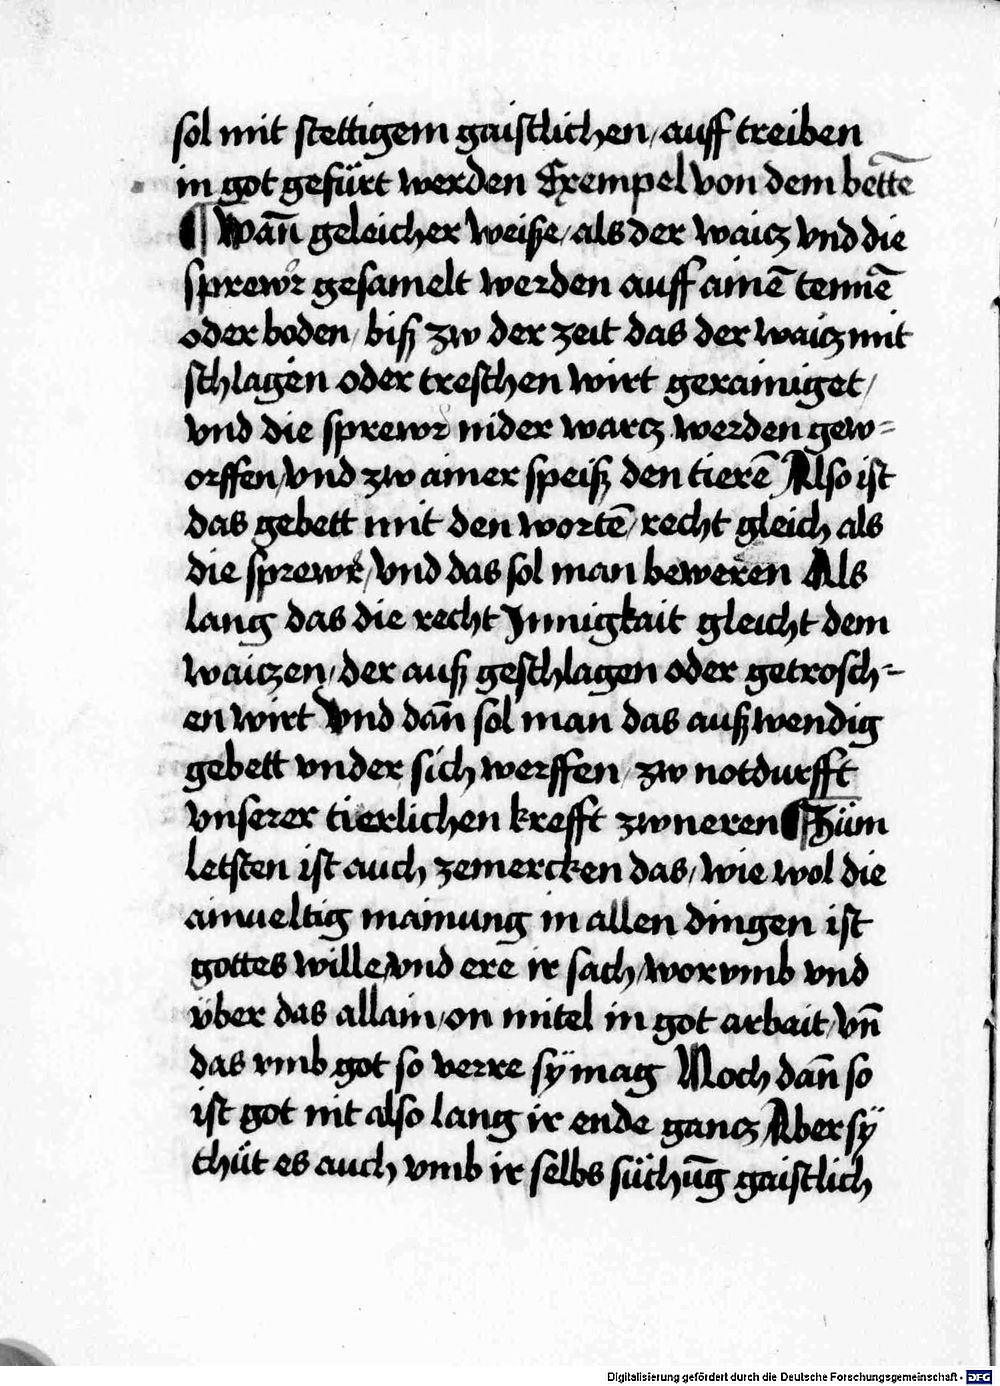 sol mit stettigem gaistlichen / auff treiben
in got gefürt werden Exempel von dem bettē
¶ Wan̄ geleicher weiße / als der waicz vnd die
sprewr gesamelt werden auff ainē tennē
oder boden / biß zw der zeit das der waicz mit
schlagen oder treschen wirt gerainiget /
vnd die sprewr nider warcz werden gew=
orffen / vnd zw ainer speiß den tierē Also ist
das gebett mit den wortē / recht gleich als
die sprewr / vnd das sol man beweren Als
lang das die recht Jnnigkait gleicht dem
waiczen / der auß geschlagen oder getrosch=
en wirt Vnd dan̄ sol man das außwendig
gebett vnder sich werffen / zw notdurfft
vnserer tierlichen krefft zwneren ¶ Züm
letsten ist auch zemercken das / wie wol die
ainueltig mainung in allen dingen ist
gottes wille / vnd ere ir sach / worvmb vnd
über das allain / on mitel in got arbait / vn̄
das vmb got so verre sÿ mag Noch dan̄ so
ist got nit also lang ir ende gancz Aber sÿ
thüt es auch vmb ir selbs süchūg gaistlich
Digitalisierung gefördert durch die Deutsche Forschungsgemeinschaft - DFG